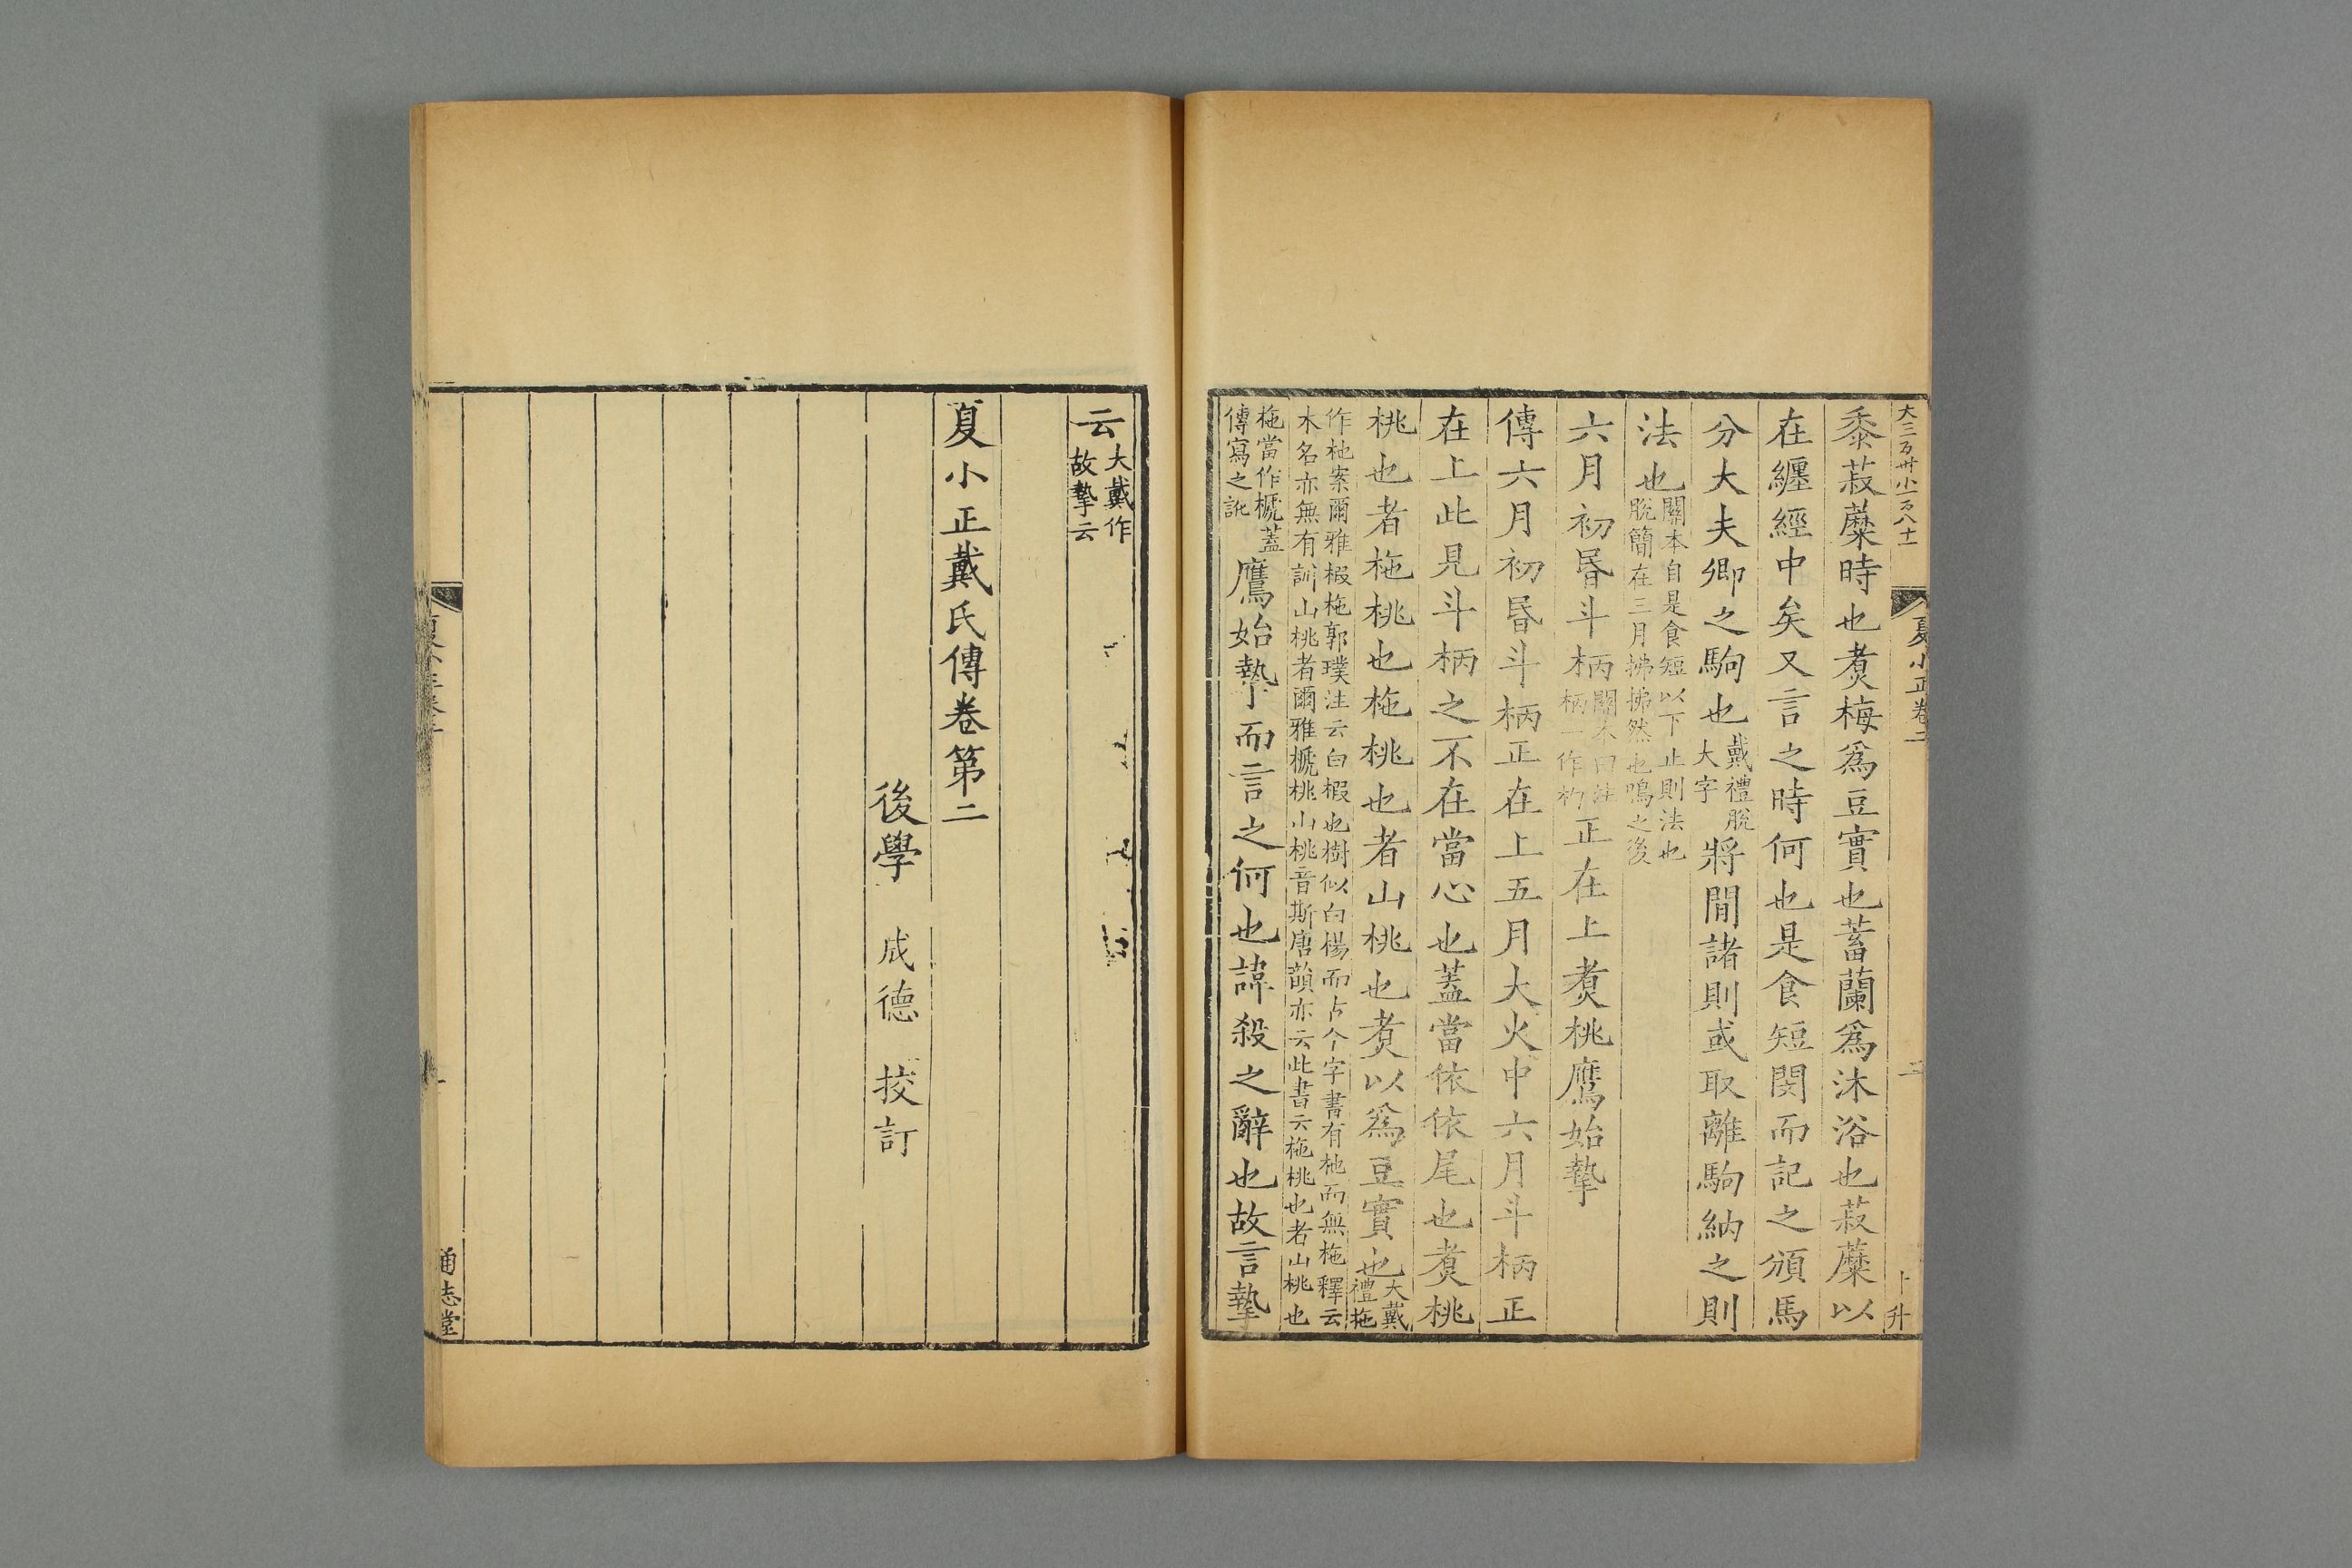 大三百卅小一百八十
夏小正卷二
二
卜升
黍菽糜時也煑梅爲豆實也蓄蘭爲沐浴也菽糜以
在纏經中矣又言之時何也是食短閔而記之頒馬
分大夫卿之駒也戴禮脫大字將閒諸則或取離駒納之則
法也關本自是食短以下止則法也脫簡在三月拂拂然也鳴之後
六月初昏斗柄關本曰注柄一作杓正在上煑桃鷹始摯
傳六月初昏斗柄正在上五月大火中六月斗柄正
在上此見斗柄之不在當心也蓋當依依尾也煑桃
桃也者杝桃也杝桃也者山桃也煑以爲豆實也大戴禮杝
作杝案爾雅椵柂郭璞注云白椵也樹似白楊而占今字書有杝而無柂釋云
木名亦無有訓山桃者爾雅榹桃山桃音斯唐韻亦云此書云柂桃也者山桃也
柂當作榹蓋傳寫之訛鷹始摯而言之何也諱殺之辭也故言摯
云大戴作故摯云
夏小正戴氏傳卷第二
後學 成德 挍訂
通志堂